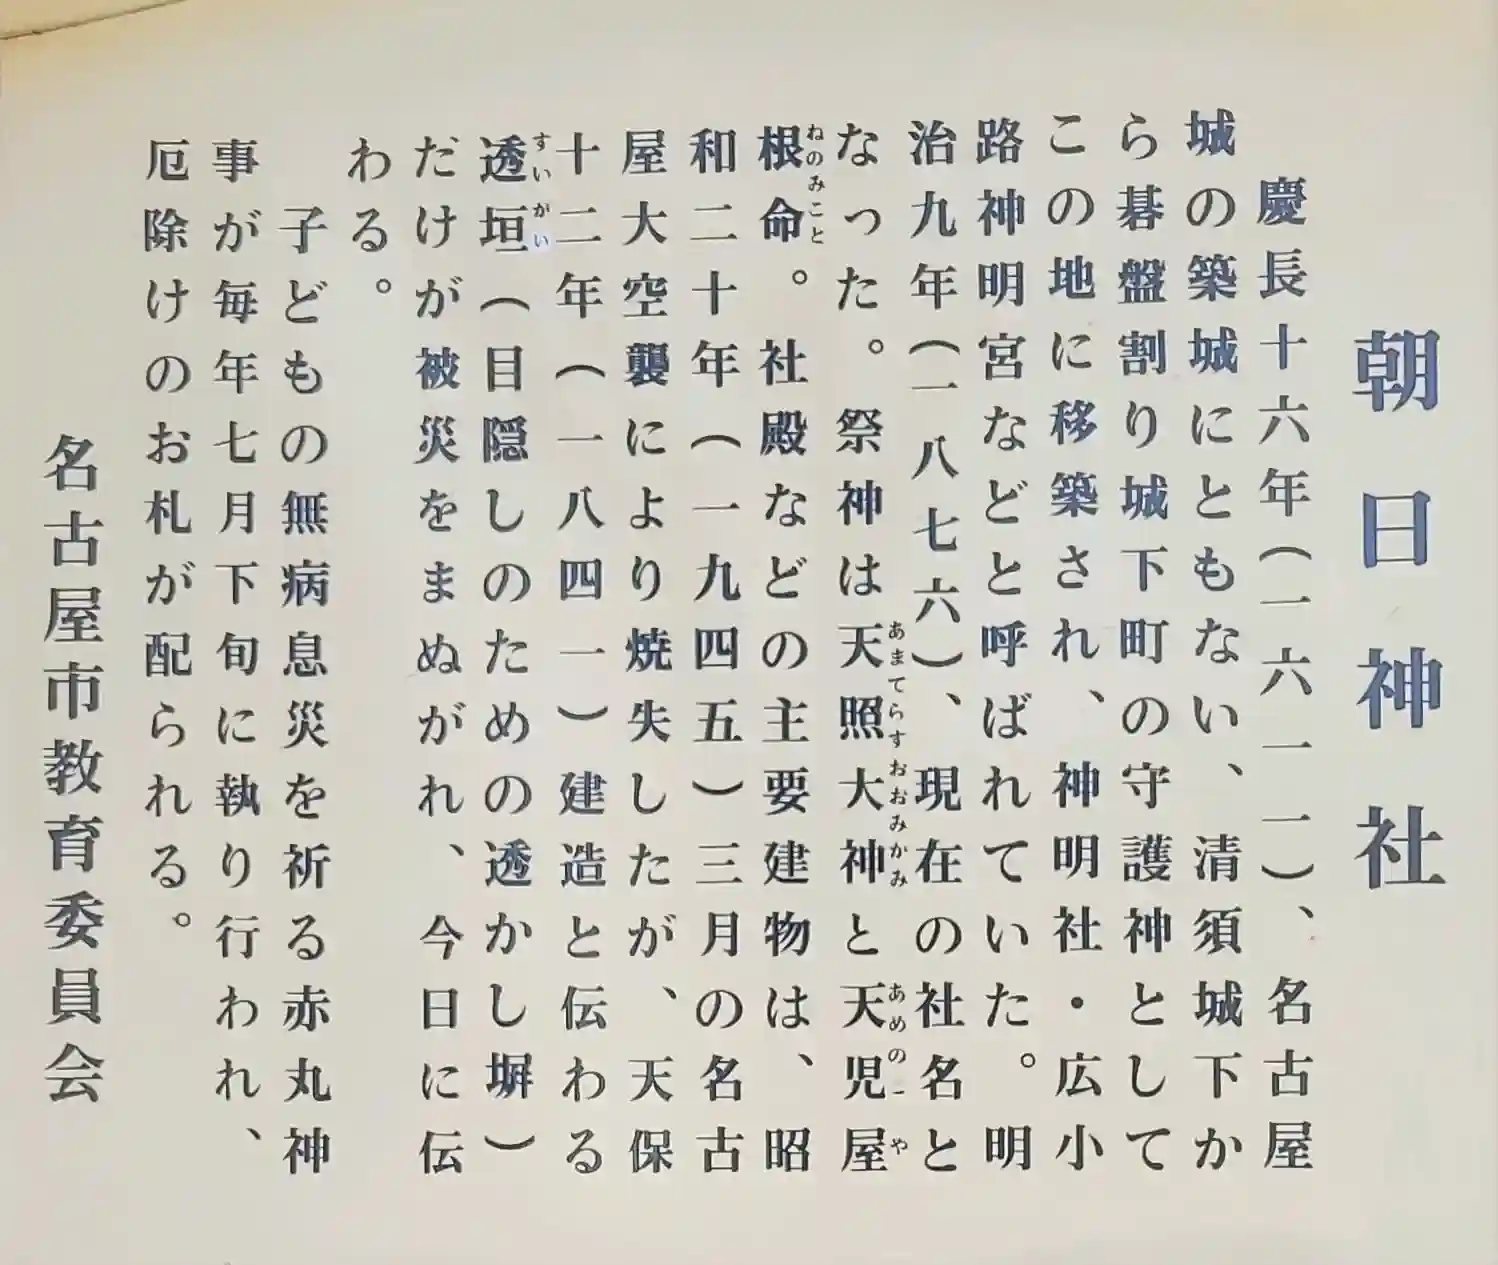 朝日神社
慶長十六年（一六一一）、名古屋
城の築城にともない、清須城下か
ら碁盤割り城下町の守護神として
この地に移築され、神明社・広小
路神明宮などと呼ばれていた。明
治九年（一八七六）、現在の社名と
なった。祭神は天照大神と天児屋
あまてらすおおみかみ
あめのこや
根命。社殿などの主要建物は、昭
ねのみこと
和二十年（一九四五）三月の名古
屋大空襲により焼失したが、天保
十二年（一八四一）建造と伝わる
透垣（目隠しのための透かし塀）
すいがい
だけが被災をまぬがれ、今日に伝
わる。
子どもの無病息災を祈る赤丸神
事が毎年七月下旬に執り行われ、
厄除けのお札が配られる。
名古屋市教育委員会